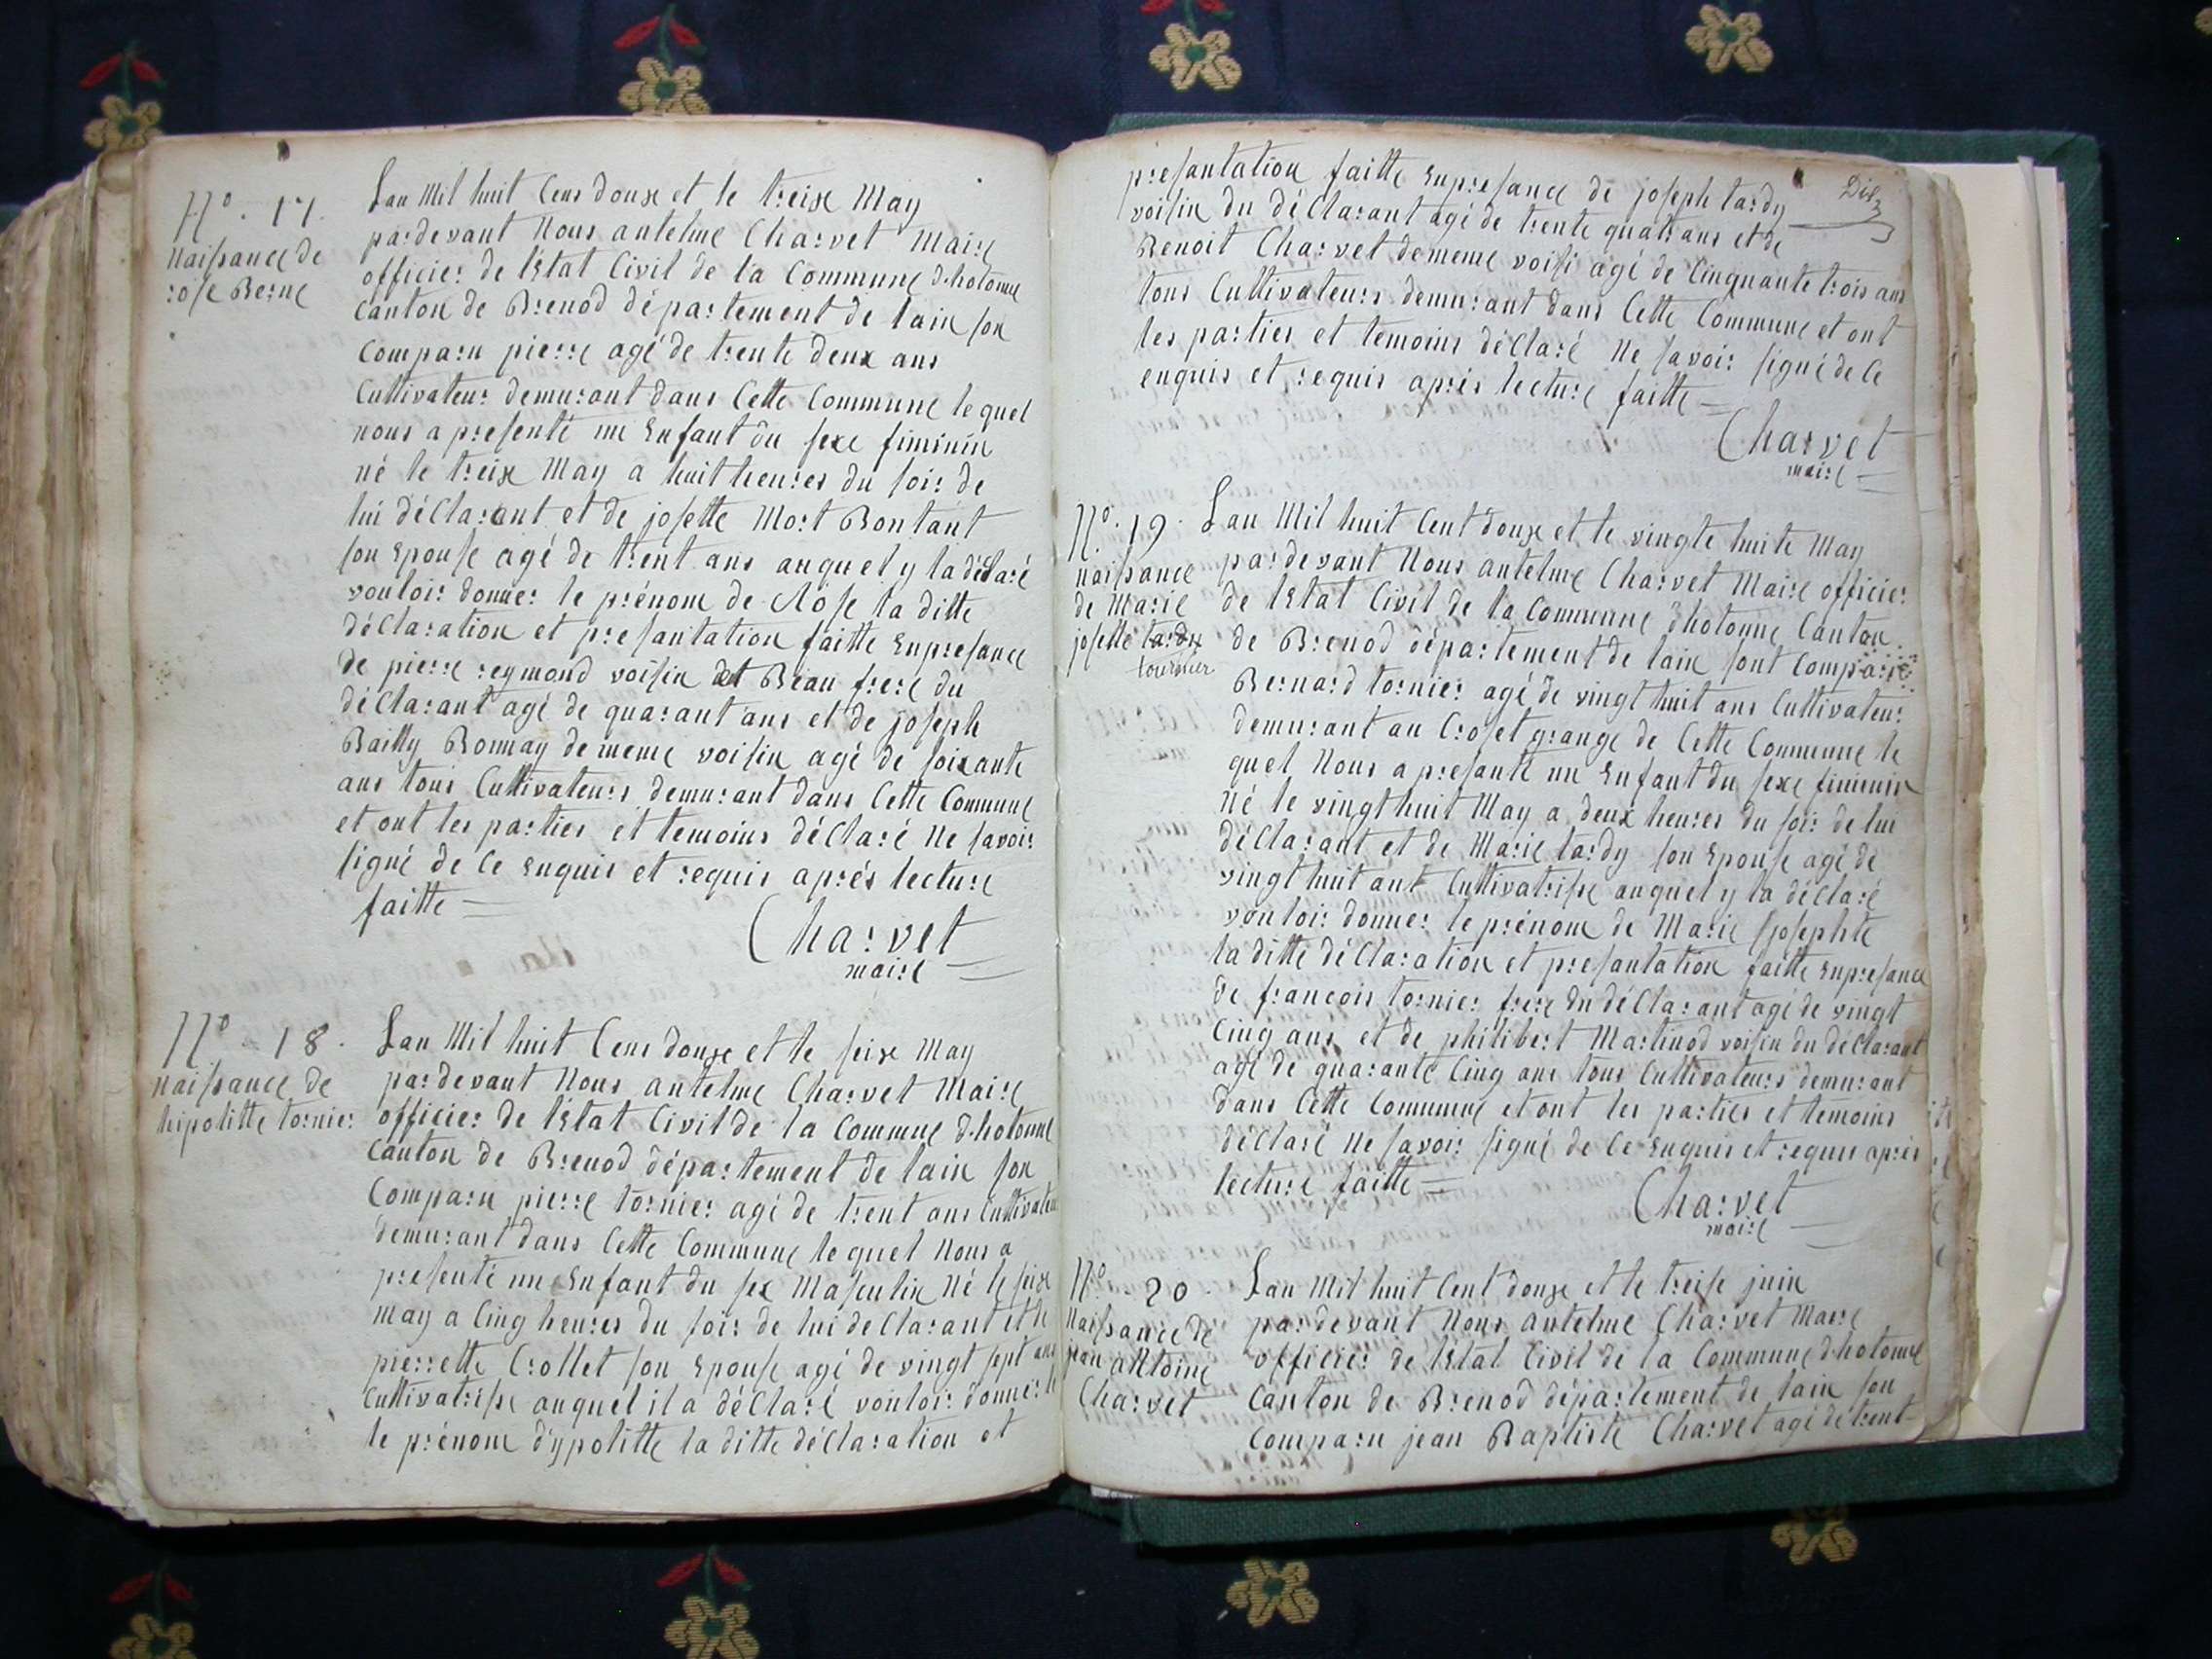 N.º 17.
naissance de
rose Berne
Lan Mil huit Cens douse et le treise May
pardevant Nous antelme Charvet Maire
officier de lEtat Civil de la Commune d'hotonne
Canton de Brenod département de lain son
Comparu pierre agé de trente deux ans
Cultivateur demurant dans Cette Commune le quel
nous a presenté un Enfant du sexe fiminin
né le treise May a huit heures du soir de
lui déClarant et de josette Mort Bontant
son Epouse agé de trent ans auquel y la déClaré
vouloir donner le prénom de Rose la ditte
déClaration et presantation faitte Enpresance
de pierre reymond voisin et Beau frere du
déClarant agé de quarant ans et de joseph
Bailly Bonnay de meme voisin agé de soixante
ans tous Cultivateurs demurant dans Cette Commune
et ont les parties et temoins déClaré Ne savoir
signé de Ce Enquis et requis aprés lecture
faitte =
Charvet
maire =
N.º 18.
naissance de
hipolitte tornier
Lan Mil huit Cens douse et le seise May
pardevant Nous antelme Charvet Maire
officier de lEtat Civil de la Commue d'hotonne
Canton de Brenod département de lain son
Comparu pierre tornier agé de trent ans Cultivateur
demurant dans Cette Commune le quel Nous a
presenté un Enfant du sex Masculin Né le seise
may a Cinq heures du soir de lui deClarant et de
pierrette Crollet son Epouse agé de vingt sept ans
Cultivatrisse auquel il a déClaré vouloir donner le
le prénom d'ypolitte la ditte déClaration et
Dix
presantation faitte Enpresance de joseph tardy
voisin du déClarant agé de trente quatr ans et de
Benoit Charvet de meme voisi agé de Cinquante trois ans
tous Cultivateurs demurant dans Cette Commune et ont
les parties et temoins déClaré Ne savoir signé de Ce
enquis et requis aprés lecture faitte =
Charvet
maire =
N.º 19.
naissance
de Marie
josette tardy
tournier
Lan Mil huit Cent douse et le vingte huite May
pardevant Nous antelme Charvet Maire officier
de lEtat Civil de la Commune d'hotonne Canton
de Brenod département de lain sont Comparu
Bernard tornier agé de vingt huit ans Cultivateur
demurant au Croset grange de Cette Commune le
quel Nous a presanté un Enfant du sexe fiminin
né le vingt huit May a deux heures du soir de lui
déClarant et de Marie tardy son Epouse agé de
vingt huit ant Cultivatrisse auquel y la déClaré
vouloir donner le prénom de Marie josephte
la ditte déClaration et presantation faitte Enpresance
de francois tornier frere du déClarant agé de vingt
Cinq ans et de philibert Martinod voisin du déClarant
agé de quarante Cinq ans tous Cultivateurs demurant
dans Cette Commune et ont les parties et temoins
déClaré Ne savoir signé de Ce Enquis et requis aprés
lecture faitte =
Charvet
maire
N.º 20.
Naissance de
jean antoine
Charvet
Lan Mil huit Cent douse et le treise juin
pardevant Nous antelme Charvet Maire
officier de lEtat Civil de la Commune d'hotonne
Canton de Brenod département de lain son
Comparu jean Baptiste Charvet agé de trent